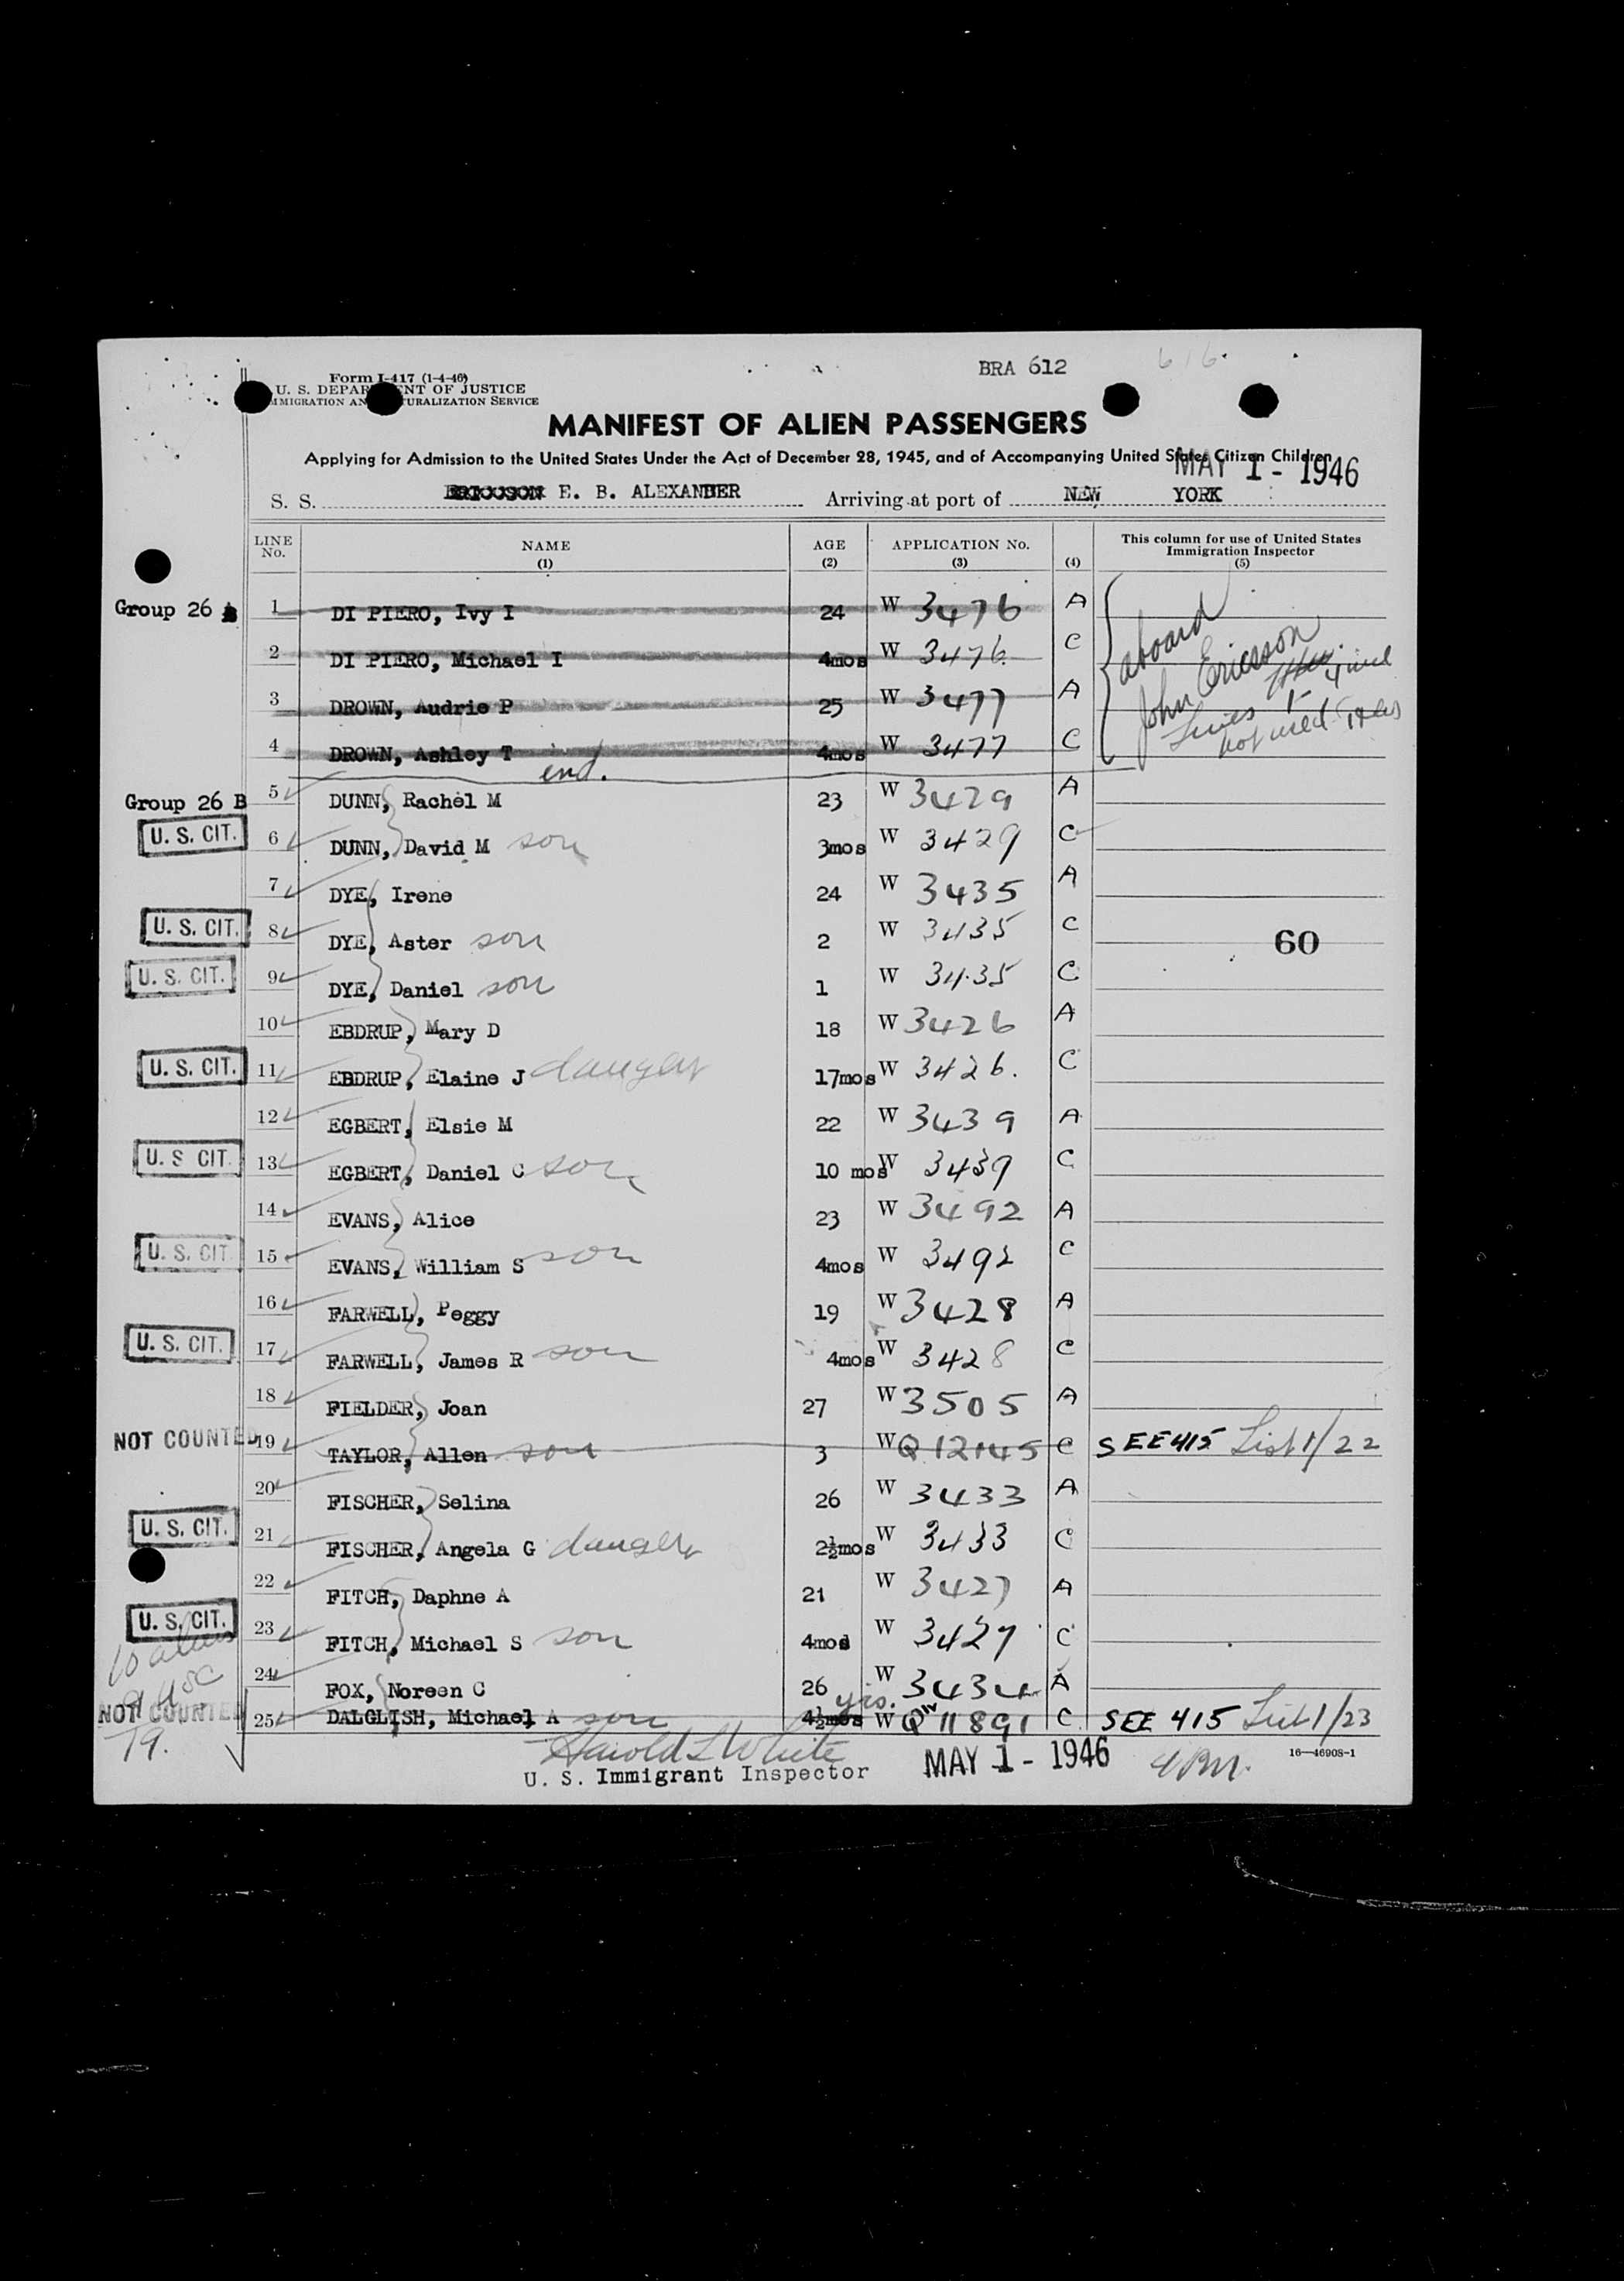 BRA 612
616
Form I-417 (1-4-46)
U. S. DEPAR ENT OF JUSTICE
MMIGRATION AN TURALIZATION SERVICE
MANIFEST OF ALIEN PASSENGERS
Applying for Admission to the United States Under the Act of December 28, 1945, and of Accompanying United States Citizen Children
MAY 1 - 1946
S. S. E. B. ALEXANDER Arriving at port of NEW YORK
LINE No. NAME (1) AGE (2) APPLICATION No. (3) (4) This column for use of United States Immigration Inspector (5)
Group 26 1 DI PIERO, Ivy I 24 W 3476 A
2 DI PIERO, Michael I 4mos W 3476 C aboard
3 DROWN, Audrie P 25 W 3477 A John Ericsson
4 DROWN, Ashley T 4mos W 3477 C Lines 1 4 incl
not used
end.
Group 26 B 5 DUNN, Rachel M 23 W 3429 A
U. S. CIT. 6 DUNN, David M son 3mos W 3429 C
7 DYE, Irene 24 W 3435 A
U. S. CIT. 8 DYE, Aster son 2 W 3435 C 60
U. S. CIT. 9 DYE, Daniel son 1 W 3435 C
10 EBDRUP, Mary D 18 W 3426 A
U. S. CIT. 11 EBDRUP, Elaine J 17mos W 3426. C
12 EGBERT, Elsie M 22 W 3439 A
U. S CIT. 13 EGBERT, Daniel C son 10 mos W 3439 C
14 EVANS, Alice 23 W 3492 A
U. S. CIT 15 EVANS, William S son 4mos W 3492 C
16 FARWELL, Peggy 19 W 3428 A
U. S. CIT. 17 FARWELL, James R son 4mos W 3428 C
18 FIELDER, Joan 27 W 3505 A
NOT COUNTED 19 TAYLOR, Allen son 3 W Q 12145 C SEE 415 List 1/22
20 FISCHER, Selina 26 W 3433 A
U. S. CIT. 21 FISCHER, Angela G 2½mos W 3433 C
22 FITCH, Daphne A 21 W 3427 A
U. S. CIT. 23 FITCH, Michael S son 4mos W 3427 C
10 aliens
9 USC
24 FOX, Noreen C 26 W 3434 A
NOT COUNTED 25 DALGLISH, Michael A son 4½mos yrs. W Q 11891 C SEE 415 List 1/23
19.
Harold L White
U. S. Immigrant Inspector MAY 1 - 1946 16—46908-1